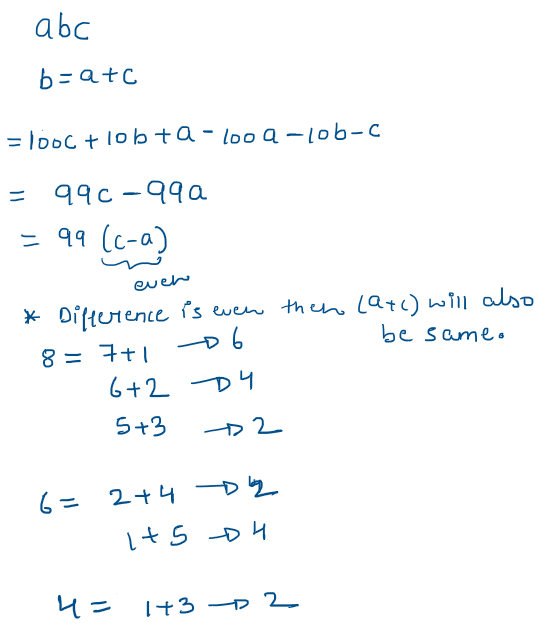 abc
b = a+c
= 100c + 10b + a - 100a - 10b - c
= 99c - 99a
= 99 (c-a)
even
* Difference is even then (a+c) will also
be same.
8 = 7+1 → 6
6+2 → 4
5+3 → 2
6 = 2+4 → 2
1+5 → 4
4 = 1+3 → 2